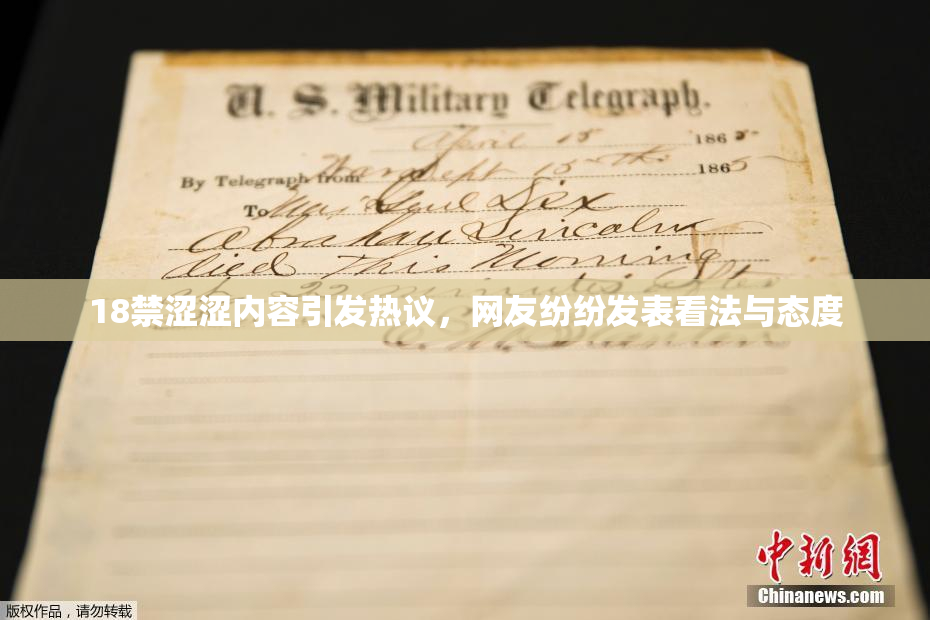 U. S. Military Telegraph.
April 15 1865
By Telegraph from War Dept 15th 1865
To Maj Genl Dix
Abraham Lincoln
died This Morning
at 22 minutes after
18禁涩涩内容引发热议，网友纷纷发表看法与态度
中新網
Chinanews.com
版权作品，请勿转载